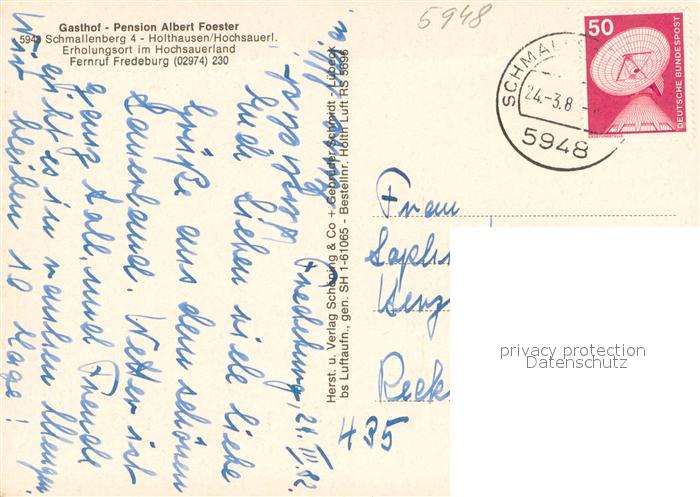 Gasthof - Pension Albert Foester
5948 Schmallenberg 4 - Holthausen/Hochsauerl.
Erholungsort im Hochsauerland
Fernruf Fredeburg (02974) 230
5948
50
DEUTSCHE BUNDESPOST
ERDEFUNKSTELLE
SCHMALL
24.-3.8
5948
Herst. u. Verlag Schöning & Co + Gebrüder Schmidt - Lübeck
bs Luftaufn., gen. SH 1-61065 - Bestellnr. Holth Luft RS 5696
Fredeburg, 24. III. 82.
Euch Lieben viele liebe
Grüße aus dem schönen
Sauerland. Wetter ist
ganz toll, und Freude
gibt es in rauhen Mengen.
Wir bleiben 10 Tage!
Frau
Reck
435
privacy protection
Datenschutz